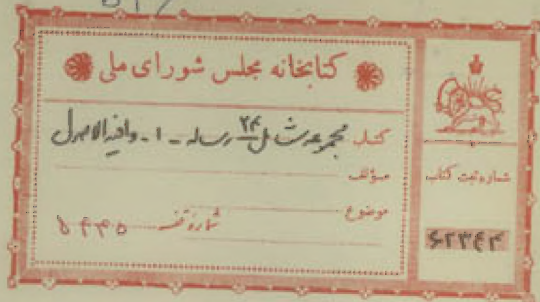 کتابخانه مجلس شورای ملی
کتاب مجموعه شامل ۲۴ رساله - ۱ -
مؤلف
موضوع
شماره قفسه ۵۴۴۵
شماره ثبت کتاب
۶۲۳۴۳